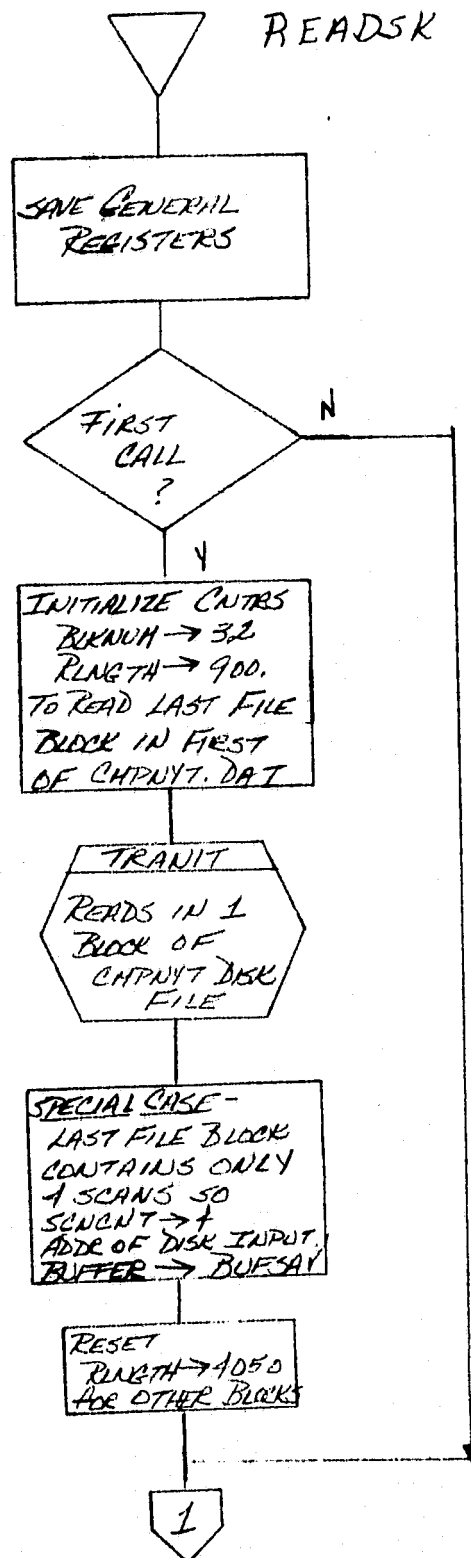 READSK
SAVE GENERAL
REGISTERS
FIRST
CALL
?
N
Y
INITIALIZE CNTRS
BLKNUM → 32
RLNGTH → 900.
TO READ LAST FILE
BLOCK IN FIRST
OF CHPNYT.DAT
TRANIT
READS IN 1
BLOCK OF
CHPNYT DISK
FILE
SPECIAL CASE -
LAST FILE BLOCK
CONTAINS ONLY
4 SCANS SO
SCNCNT → 4
ADDR OF DISK INPUT
BUFFER → BUFSAV
RESET
RLNGTH → 4050
FOR OTHER BLOCKS
1